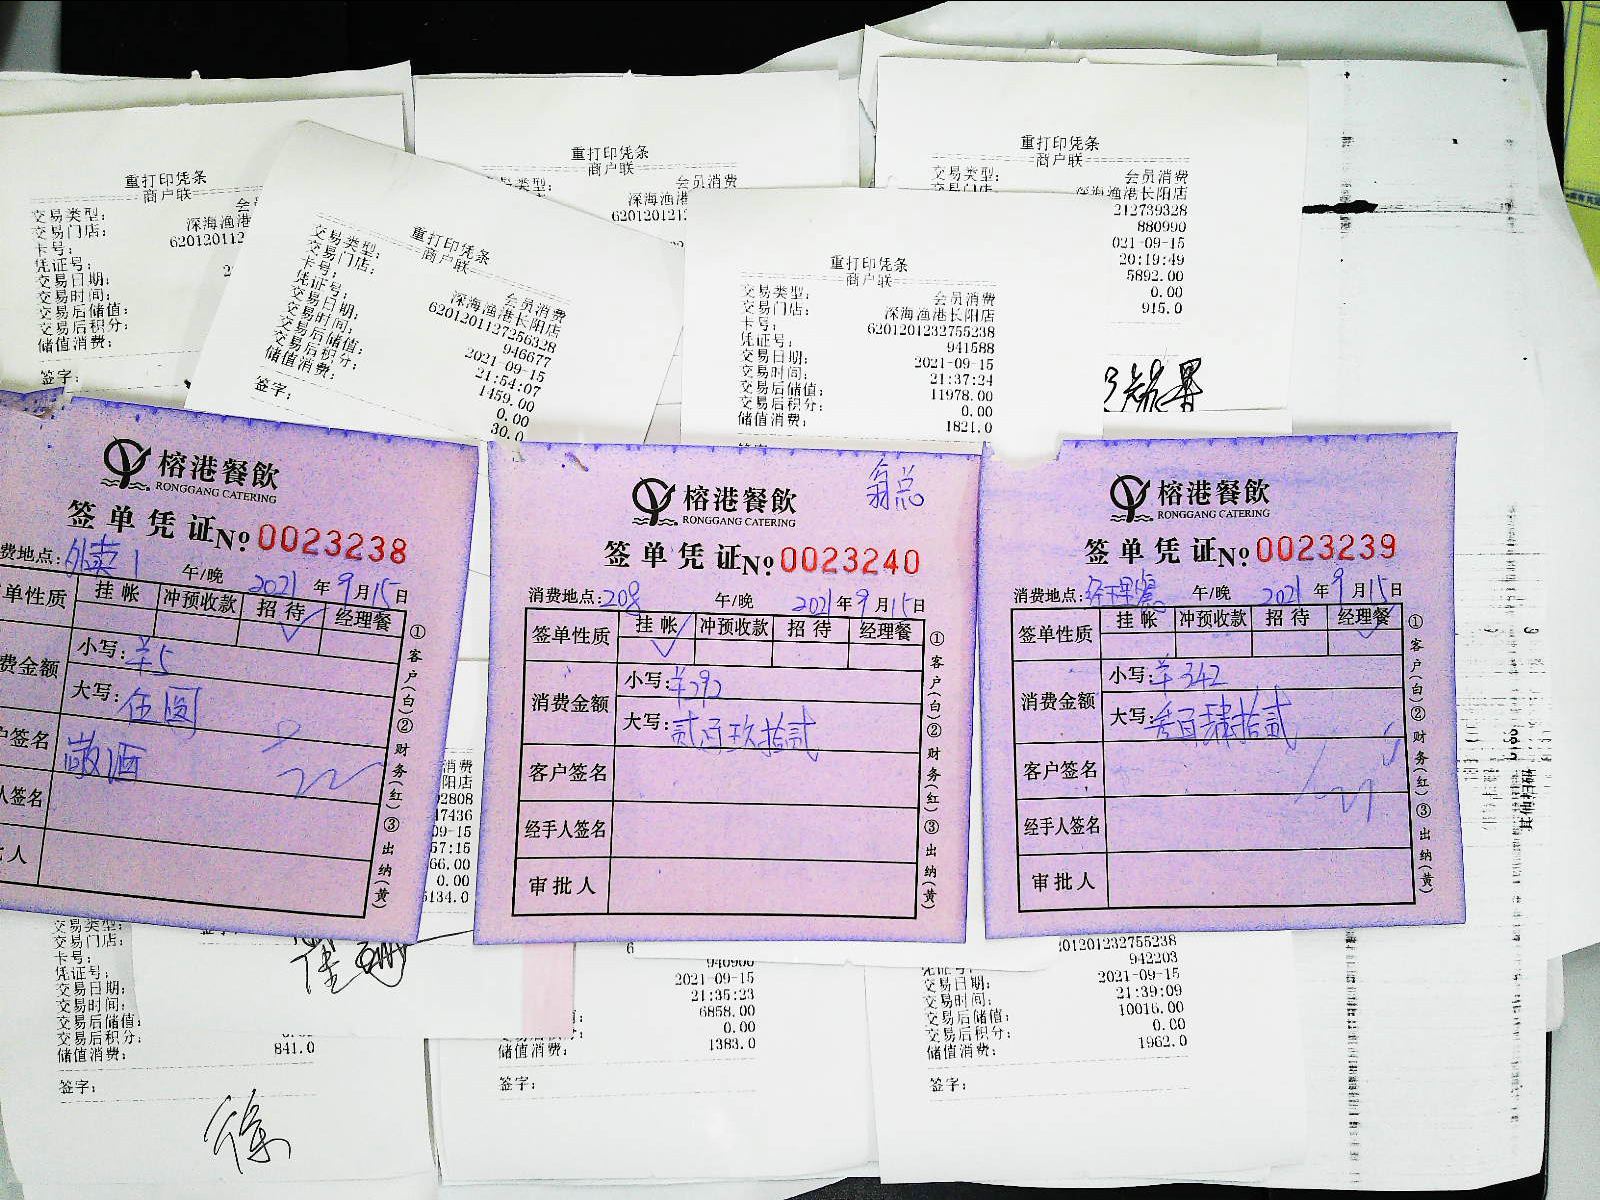 重打印凭条
商户联
交易类型: 会
交易门店: 深海渔港
卡号: 620120112
凭证号:
交易日期:
交易时间:
交易后储值:
交易后积分:
储值消费:
签字:
重打印凭条
商户联
交易类型: 会员消费
交易门店: 深海渔港长阳店
卡号: 6201201127256328
凭证号: 946677
交易日期: 2021-09-15
交易时间: 21:54:07
交易后储值: 1459.00
交易后积分: 0.00
储值消费: 30.0
签字:
重打印凭条
商户联
类型: 会员消费
深海渔港
62012012
重打印凭条
商户联
交易类型: 会员消费
交易门店: 深海渔港长阳店
卡号: 6201201232755238
凭证号: 941588
交易日期: 2021-09-15
交易时间: 21:37:24
交易后储值: 11978.00
交易后积分: 0.00
储值消费: 1821.0
重打印凭条
商户联
交易类型: 会员消费
交易门店: 深海渔港长阳店
212739328
880990
021-09-15
20:19:49
5892.00
0.00
915.0
榕港餐飲
RONGGANG CATERING
签单凭证 No 0023238
费地点: 外卖1 午/晚 2021年9月15日
单性质 挂帐 冲预收款 招待 经理餐
费金额 小写: ¥5
大写: 伍圆
户签名 敬酒
人签名
人
①客户(白)②财务(红)③出纳(黄)
榕港餐飲
RONGGANG CATERING
翁总
签单凭证 No 0023240
消费地点: 208 午/晚 2021年9月15日
签单性质 挂帐 冲预收款 招待 经理餐
消费金额 小写: ¥292
大写: 贰百玖拾贰
客户签名
经手人签名
审批人
①客户(白)②财务(红)③出纳(黄)
榕港餐飲
RONGGANG CATERING
签单凭证 No 0023239
消费地点: 经理餐 午/晚 2021年9月15日
签单性质 挂帐 冲预收款 招待 经理餐
消费金额 小写: ¥342
大写: 叁百肆拾贰
客户签名
经手人签名
审批人
①客户(白)②财务(红)③出纳(黄)
消费
阳店
2808
7436
09-15
57:15
66.00
0.00
5134.0
交易类型:
交易门店:
卡号:
凭证号:
交易日期:
交易时间:
交易后储值:
交易后积分:
储值消费: 841.0
签字:
徐
940900
2021-09-15
21:35:23
6858.00
0.00
储值消费: 1383.0
签字:
01201232755238
凭证号: 942203
交易日期: 2021-09-15
交易时间: 21:39:09
交易后储值: 10016.00
交易后积分: 0.00
储值消费: 1962.0
签字: